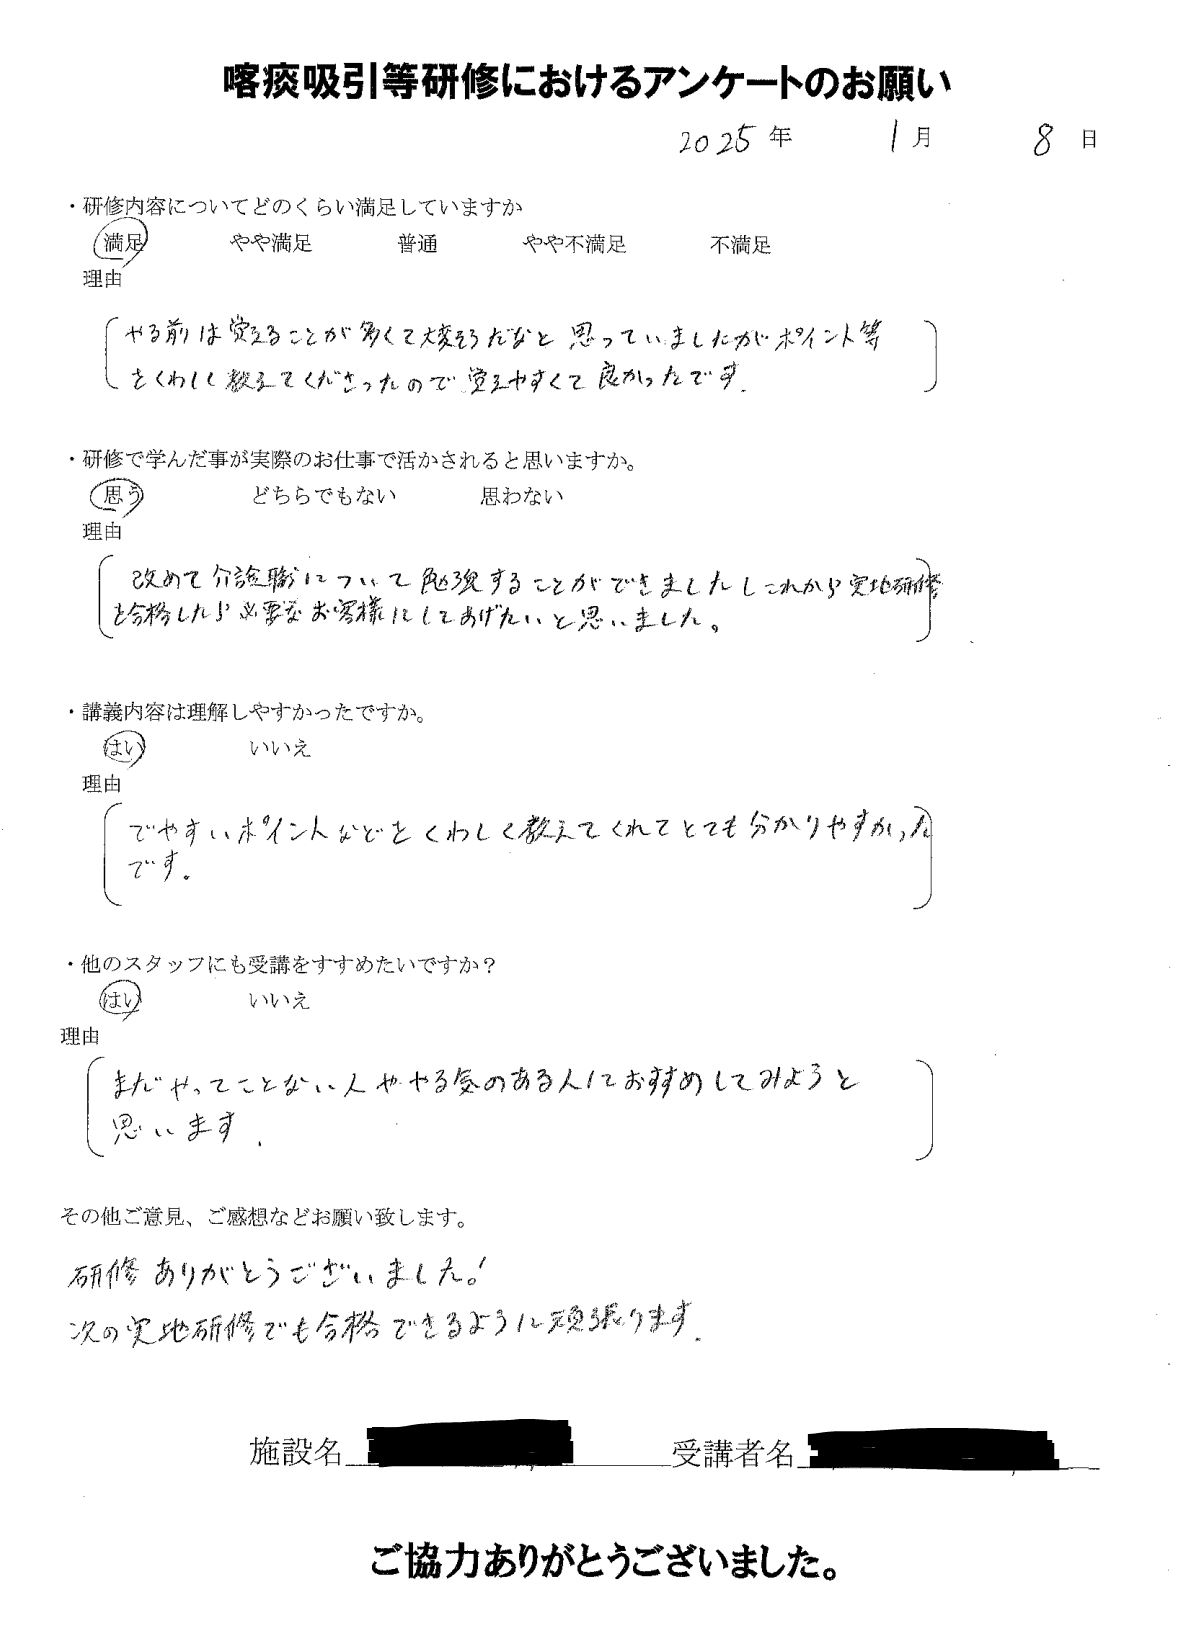 喀痰吸引等研修におけるアンケートのお願い
2025年 1月 8日
・研修内容についてどのくらい満足していますか
満足 やや満足 普通 やや不満足 不満足
理由
やる前は覚えることが多くて大変そうだなと思っていましたがポイント等
をくわしく教えてくださったので覚えやすくて良かったです.
・研修で学んだ事が実際のお仕事で活かされると思いますか。
思う どちらでもない 思わない
理由
改めて介護職について勉強することができましたしこれから実地研修
を合格したら必要なお客様にしてあげたいと思いました。
・講義内容は理解しやすかったですか。
はい いいえ
理由
でやすいポイントなどをくわしく教えてくれてとても分かりやすかった
です。
・他のスタッフにも受講をすすめたいですか？
はい いいえ
理由
まだやってことない人ややる気のある人におすすめしてみようと
思います.
その他ご意見、ご感想などお願い致します。
研修ありがとうございました!
次の実地研修でも合格できるように頑張ります.
施設名 受講者名
ご協力ありがとうございました。